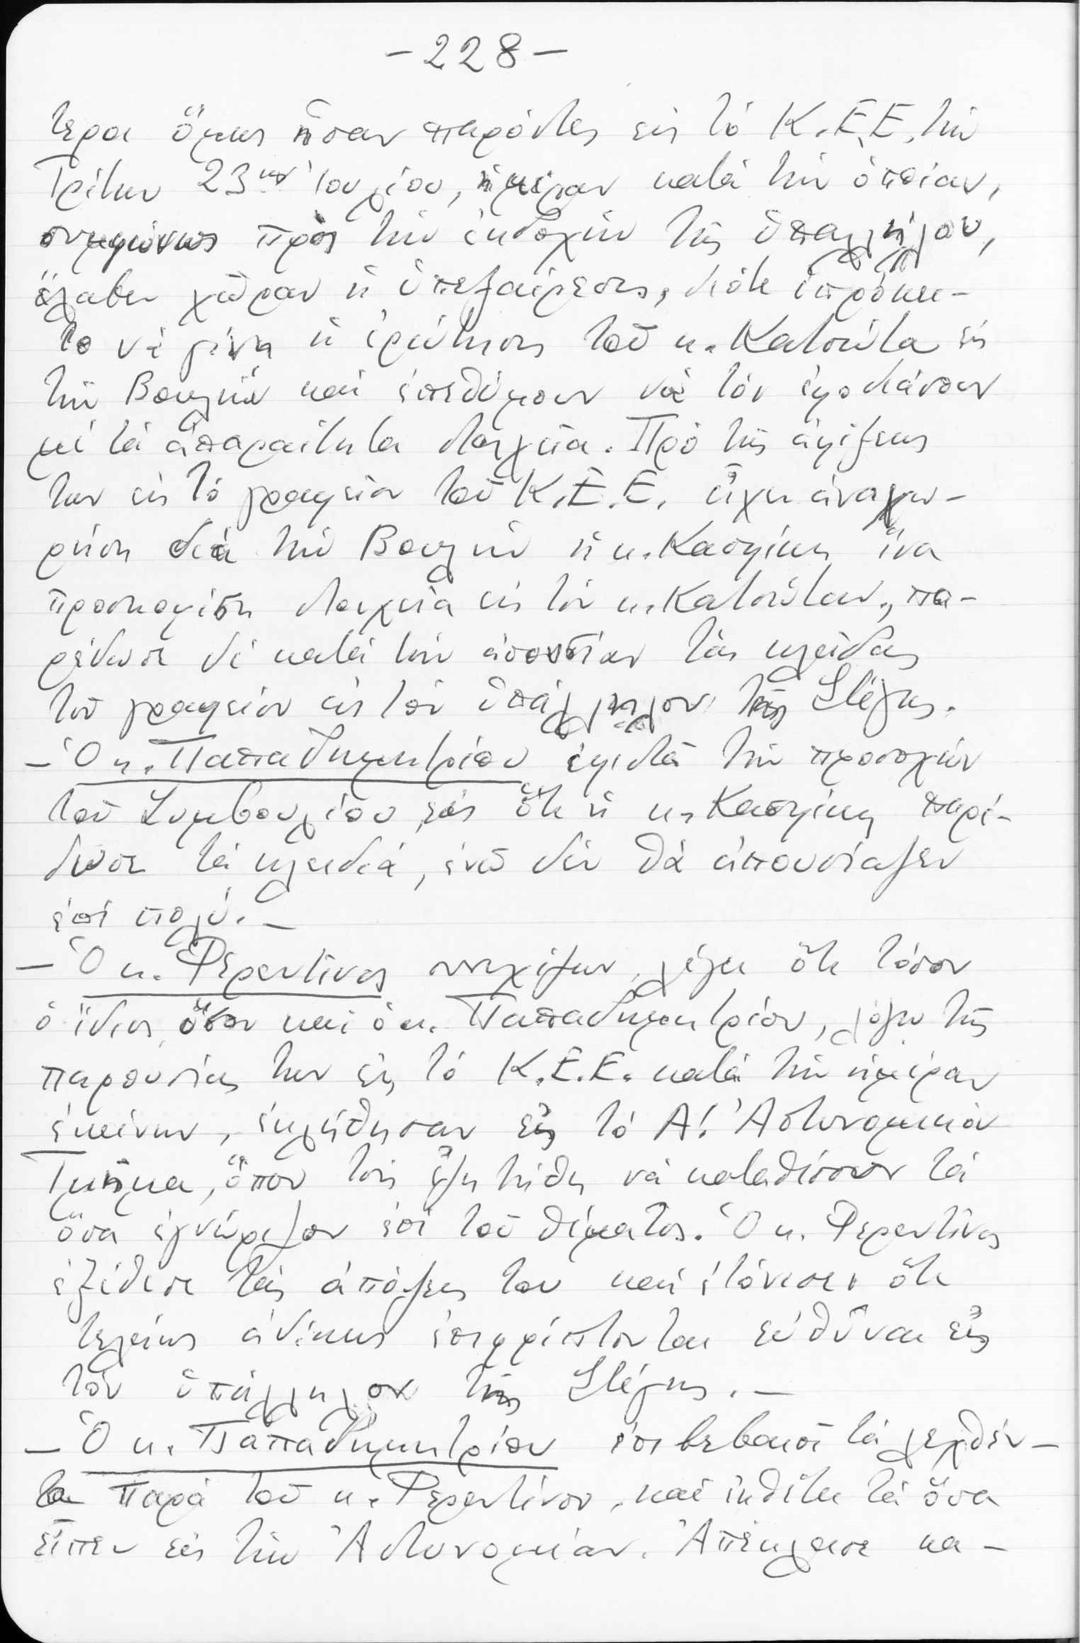 -228-
τεροι ὅμως ἦσαν παρόντες εἰς τό Κ.Ε.Ε. τήν
Τρίτην 23ην Ἰουλίου, ἡμέραν κατά τήν ὁποίαν,
συμφώνως πρός τήν ἐκδοχήν τῆς ὑπαλλήλου,
ἔλαβεν χώραν ἡ ὑπεξαίρεσις, διότι ἐπρόκει-
το νά γίνῃ ἡ ἐρώτησις τοῦ κ. Κατσώτα εἰς
τήν Βουλήν καί ἐπεθύμουν νά τόν ἐφοδιάσουν
μέ τά ἀπαραίτητα στοιχεῖα. Πρό τῆς ἀφίξεως
των εἰς τό γραφεῖον τοῦ Κ.Ε.Ε. εἶχεν ἀναχω-
ρήση διά τήν Βουλήν ἡ κ. Κασιμίκη ἵνα
προσκομίση στοιχεῖα εἰς τόν κ. Κατσώταν, πα-
ρέδωσε δέ κατά τήν ἀπουσίαν τάς κλεῖδας
τοῦ γραφείου εἰς τόν ὑπάλληλον τῆς Στέγης.
- Ὁ κ. Παπαδημητρίου ἐφιστᾶ τήν προσοχήν
τοῦ Συμβουλίου εἰς ὅτι ἡ κ. Κασιμίκη παρέ-
δωσε τά κλειδιά, ἐνῶ δέν θά ἀπουσίαζεν
ἐπί πολύ. -
- Ὁ κ. Φερεντῖνος συνεχίζων, λέγει ὅτι τόσον
ὁ ἴδιος ὅσον καί ὁ κ. Παπαδημητρίου, λόγω τῆς
παρουσίας των εἰς τό Κ.Ε.Ε. κατά τήν ἡμέραν
ἐκείνην, ἐκλήθησαν εἰς τό Α! Ἀστυνομικόν
Τμῆμα, ὅπου τούς ἐζητήθη νά καταθέσουν τά
ὅσα ἐγνώριζον ἐπί τοῦ θέματος. Ὁ κ. Φερεντῖνος
ἐξέθεσε τάς ἀπόψεις του καί ἐτόνισεν ὅτι
τελείως ἀδίκως ἐπιρρίπτονται εὐθῦναι εἰς
τόν ὑπάλληλον τῆς Στέγης. -
- Ὁ κ. Παπαδημητρίου ἐπιβεβαιοῖ τά λεχθέν-
τα παρά τοῦ κ. Φερεντίνου, καί ἐκθέτει τά ὅσα
εἶπεν εἰς τήν Ἀστυνομίαν. Ἀπέκλεισε κα-